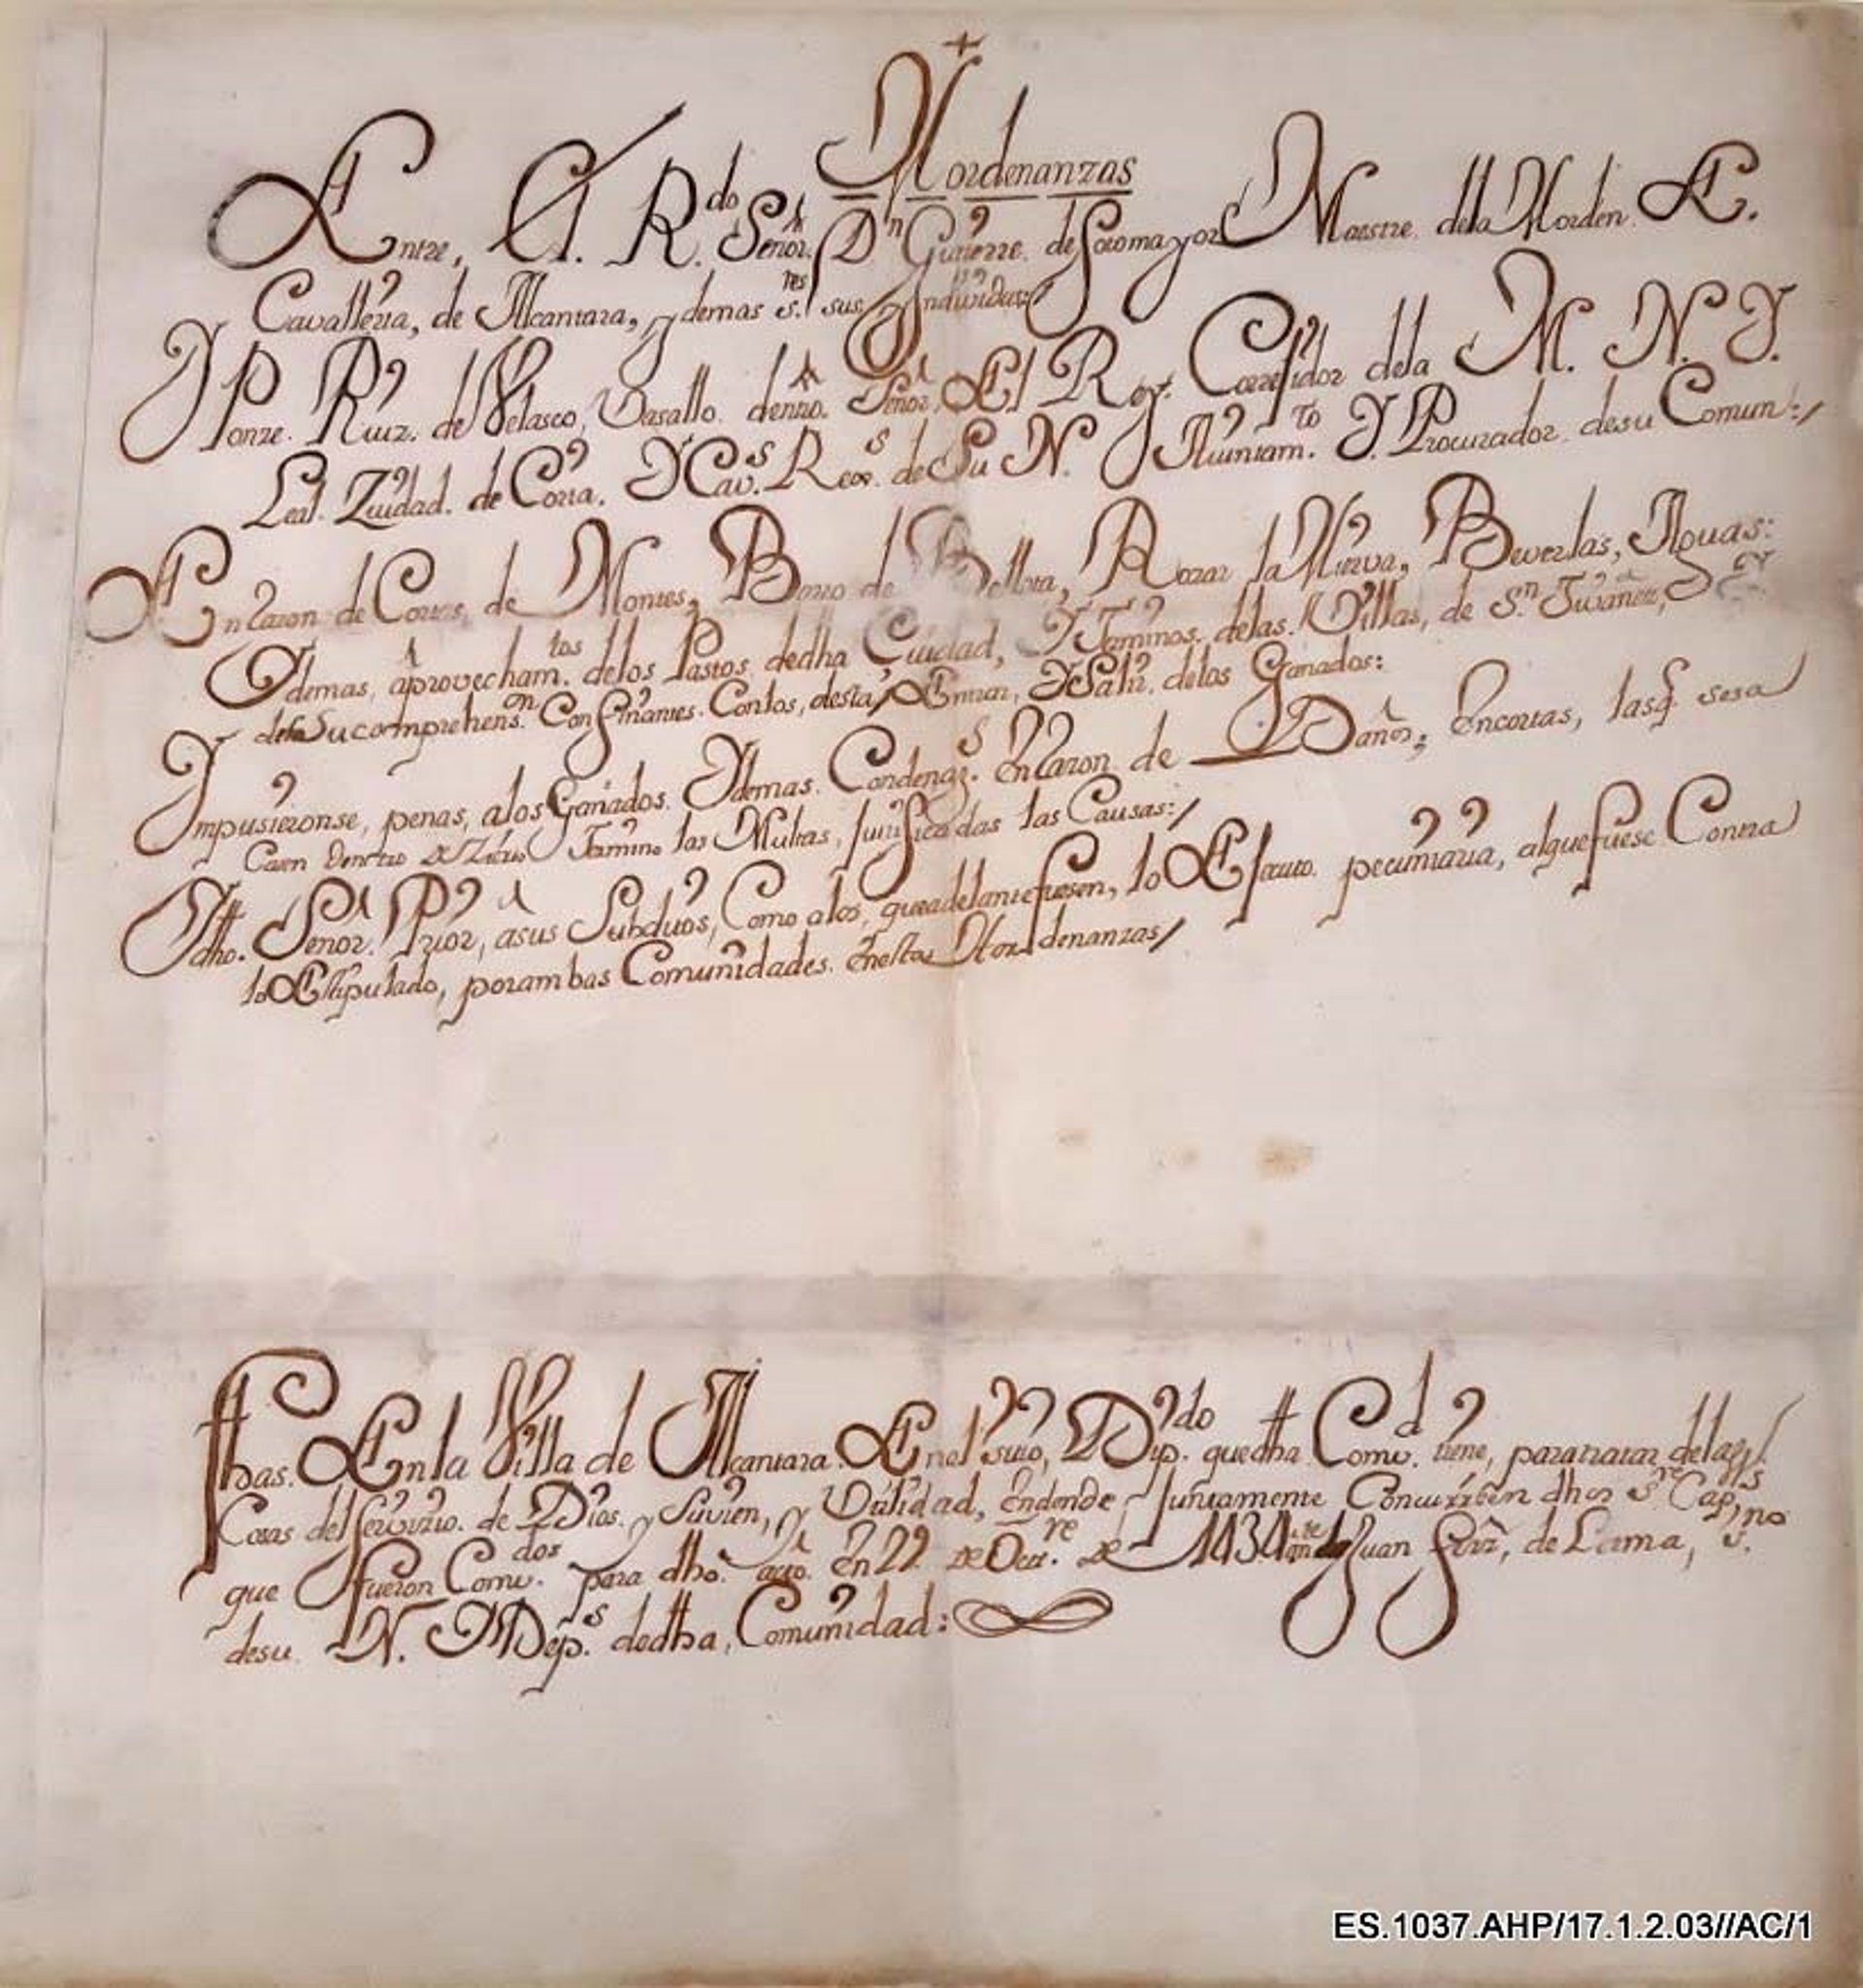 Hordenanzas
Entre, El. R.do Señor. Dn Gutierre. de Sotomayor Maestre. dela Horden. E.
Cavalleria, de Alcantara, y demas s.res sus Yndividuos:/
Y Ponze. Ruiz. de Velasco, Vasallo. de nro. Señor, El Rey. Corregidor dela M. N. Y.
Leal. Ziudad. de Coria. Y Cav.s Rexs. de Su N. Aiuntam.to Y. Procurador desu Comun:/
En Razon de Cortes, de Montes, Bareo de Bellota, Rozar la Yierva, Beverlas, Aguas:
Y demas, aprovecham.tos delos Pastos dedha Ciudad, Y Terminos. delas. Villas, de S.n
dela Su comprehens.on Confinantes. Con los, desta, Entrar, Y Salir. delos Ganados:
Impusieronse, penas, alos Ganados. Y demas. Condenaz.s En Razon de Daños, Encorias, lasq. sesa
Caen dentro Termino las Multas, Justificadas las Causas:/
Y dho. Señor. Prior, asus Subduos, Como alos, queadelante fuesen, lo pecuniaria, alque fuese Contra
lo Estipulado, porambas Comunidades. Enestas Hordenanzas/
fhas. En la Villa de Alcantara. En el sitio, Dip.do quedha Comu.d tiene, paratratar delas
Cosas del Servizio. de Dios. y Suvien, y Utilidad, Endonde Juntamente Concurrieron dhos s.res Cap.s
que fueron Comi.dos para dho. acto. En 22. de Oct.re de 1434 Juan de Lema, s.no
desu. N. Y Dep.s dedha, Comunidad:
ES.1037.AHP/17.1.2.03//AC/1